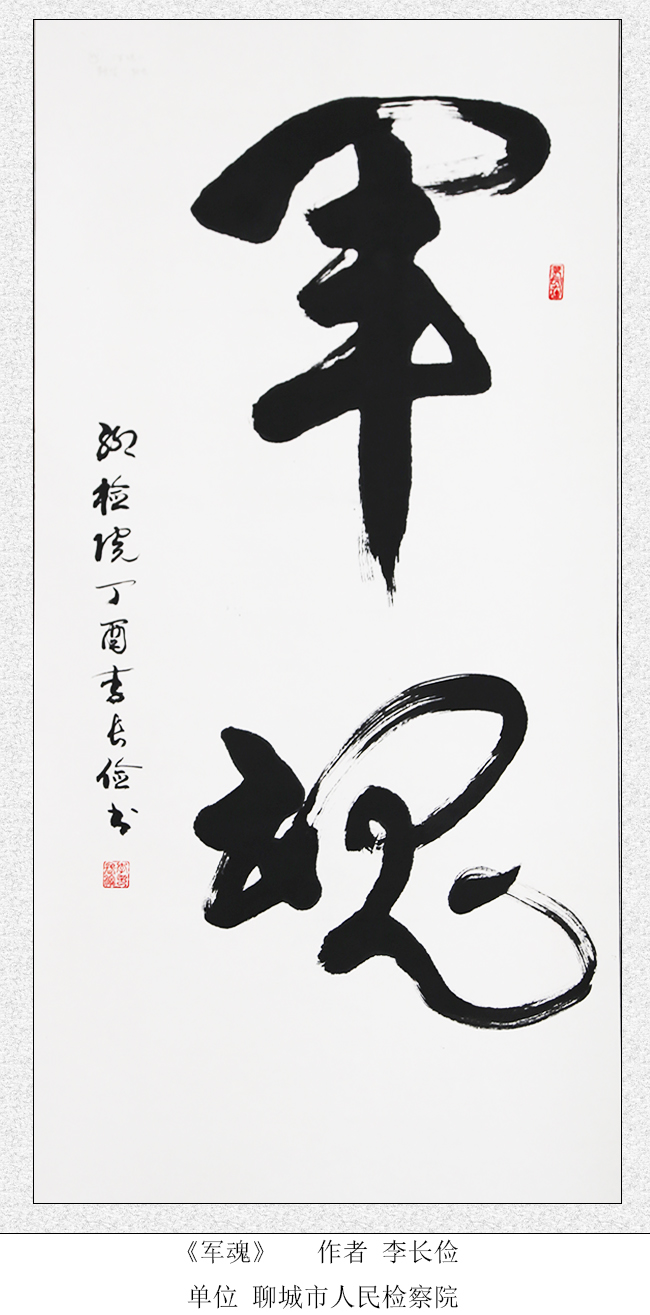 军魂
聊检院丁酉李长俭书
《军魂》 作者 李长俭
单位 聊城市人民检察院